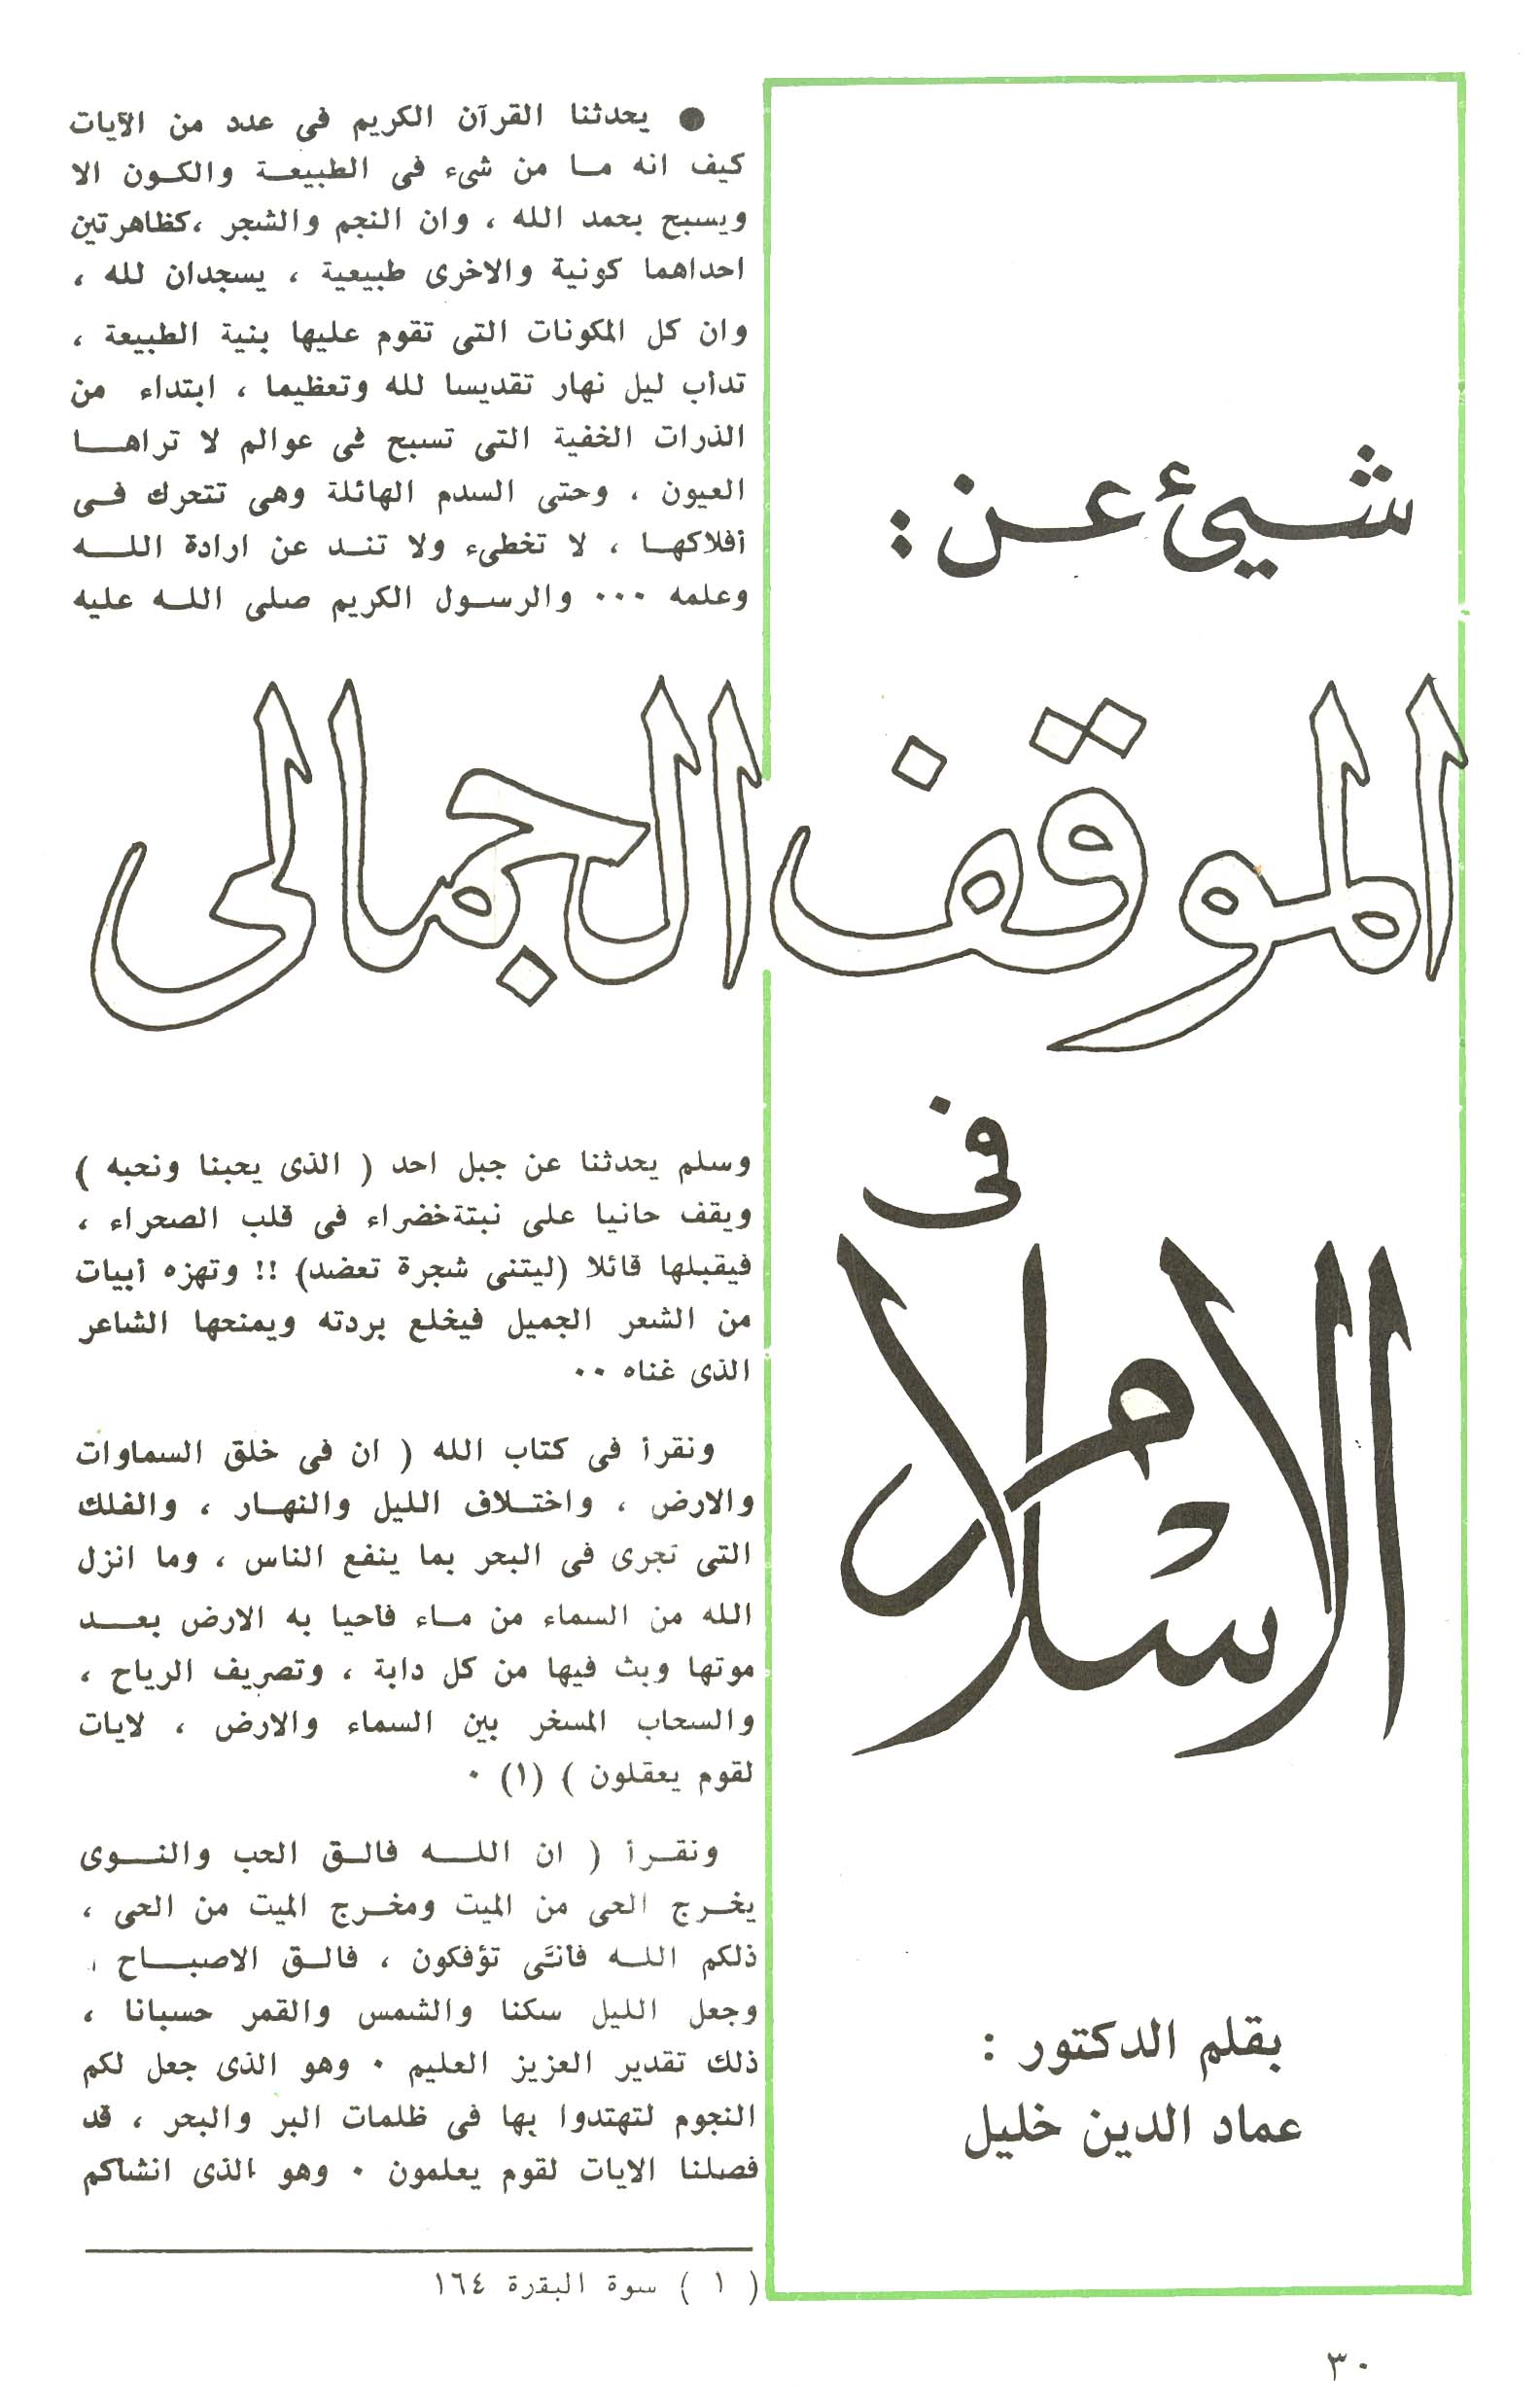 شيئ عن :
الموقف الجمالى
فى
الاسلام
بقلم الدكتور :
عماد الدين خليل
● يحدثنا القرآن الكريم فى عدد من الآيات
كيف انه مـا من شىء فى الطبيعـة والكـون الا
ويسبح بحمد الله ، وان النجم والشجر ،كظاهرتين
احداهما كونية والاخرى طبيعية ، يسجدان لله ،
وان كل المكونات التى تقوم عليها بنية الطبيعة ،
تدأب ليل نهار تقديسا لله وتعظيما ، ابتداء من
الذرات الخفية التى تسبح فى عوالم لا تراهـا
العيون ، وحتى السدم الهائلة وهى تتحرك فـى
أفلاكهـا ، لا تخطىء ولا تنـد عن ارادة اللـه
وعلمه ... والرسـول الكريم صلى اللـه عليه
وسلم يحدثنا عن جبل احد ( الذى يحبنا ونحبه )
ويقف حانيا على نبتةخضراء فى قلب الصحراء ،
فيقبلها قائلا (ليتنى شجرة تعضد) !! وتهزه أبيات
من الشعر الجميل فيخلع بردته ويمنحها الشاعر
الذى غناه ..
ونقرأ فى كتاب الله ( ان فى خلق السماوات
والارض ، واختـلاف الليل والنهـار ، والفلك
التى تجرى فى البحر بما ينفع الناس ، وما انزل
الله من السماء من مـاء فاحيا به الارض بعـد
موتها وبث فيها من كل دابة ، وتصريف الرياح ،
والسحاب المسخر بين السماء والارض ، لايات
لقوم يعقلون ) (١) .
ونقـرأ ( ان اللـه فالـق الحب والنـوى
يخـرج الحى من الميت ومخـرج الميت من الحى ،
ذلكم اللـه فأنىَّ تؤفكون ، فالـق الاصبـاح ،
وجعل الليل سكنا والشمس والقمر حسبانا ،
ذلك تقدير العزيز العليم . وهو الذى جعل لكم
النجوم لتهتدوا بها فى ظلمات البر والبحر ، قد
فصلنا الايات لقوم يعلمون . وهو الذى انشاكم
( ١ ) سوة البقرة ١٦٤
٣٠